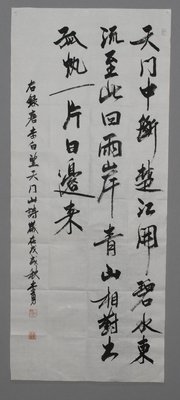 天门中断楚江开碧水東
流至此回兩岸青山相對出
孤帆一片日邊来
右録唐李白望天门山詩歲在戊戌秋